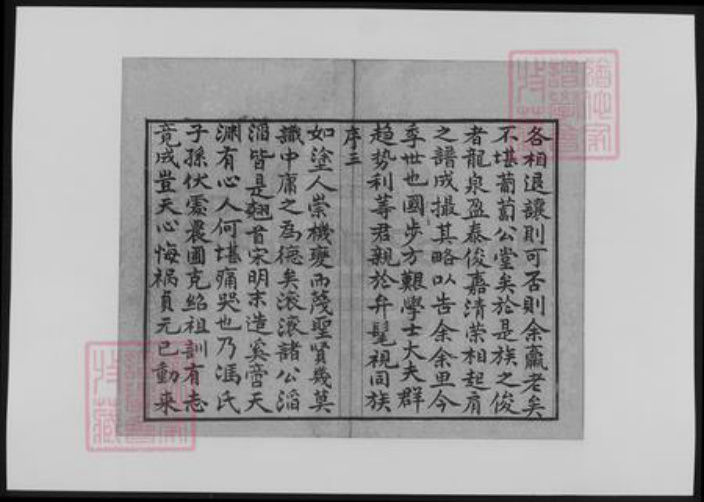 各相退讓則可否則余羸老矣
不堪蔔蔔公堂矣於是族之俊
者龍泉盈泰俊嘉清荣相起肩
之譜成撮其略以告余余思今
季世也國步方艱學士大夫群
趋势利等君親於弁髦視同族
序三
如塗人崇機變而蔑聖賢幾莫
識中庸之為德矣滚滚諸公滔
滔皆是翹首宋明末造奚啻天
渊有心人何堪痛哭也乃馮氏
子孫伏處農圃克紹祖訓有志
竟成豈天心悔禍貞元已動来